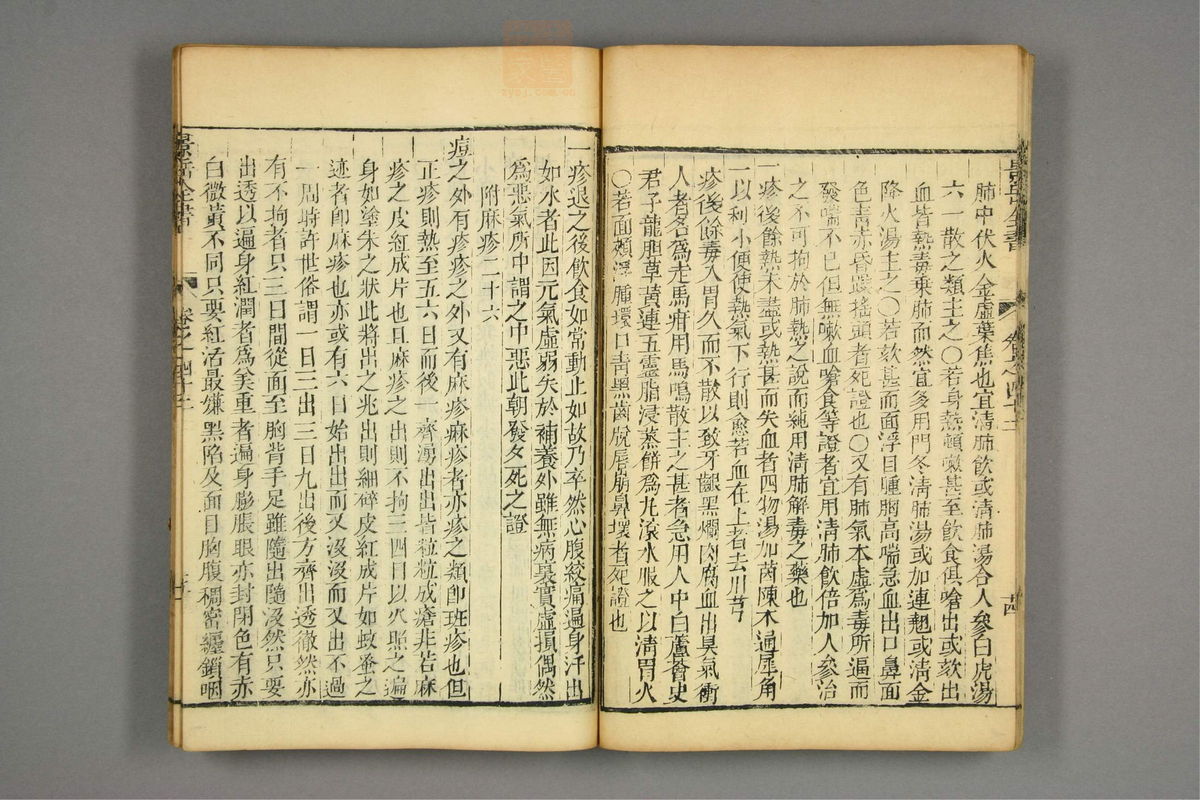 肺中伏火金虛葉焦也宜清肺飲或清肺湯合人參白虎湯
六一散之類主之○若身熱頓嗽甚至飲食俱嗆出或欬出
血皆熱毒乘肺而然宜多用門冬清肺湯或加連翹或清金
降火湯主之○若欬甚而面浮目腫胸高喘急血出口鼻面
色青赤昏躁搖頭者死證也○又有肺氣本虛為毒所逼而
發喘不已但無嗽血嗆食等證者宜用清肺飲倍加人參治
之不可拘於肺熱之說而純用清肺解毒之藥也
一疹後餘熱未盡或熱甚而失血者四物湯加茵陳木通犀角
一以利小便使熱氣下行則愈若血在上者去川芎
疹後餘毒入胃久而不散以致牙齦黑爛肉腐血出臭氣衝
人者名為走馬疳用馬鳴散主之甚者急用人中白蘆薈史
君子龍胆草黃連五靈脂浸蒸餅為丸滾水服之以清胃火
○若面頰浮腫環口青黑齒脫唇崩鼻壞者死證也
一疹退之後飲食如常動止如故乃卒然心腹絞痛遍身汗出
如水者此因元氣虛弱失於補養外雖無病裏實虛損偶然
為惡氣所中謂之中惡此朝發夕死之證
附麻疹二十六
痘之外有疹疹之外又有麻疹麻疹者亦疹之類即斑疹也但
正疹則熱至五六日而後一齊湧出出皆粒粒成瘡非若麻
疹之皮紅成片也且麻疹之出則不拘三四日以火照之遍
身如塗朱之狀此將出之兆出則細碎皮紅成片如蚊蚤之
迹者即麻疹也亦或有六日始出出而又沒沒而又出不過
一周時許世俗謂一日三出三日九出後方齊出透徹然亦
有不拘者只三日間從面至胸背手足雖隨出隨沒然只要
出透以遍身紅潤者為美重者遍身膨脹眼亦封閉色有赤
白微黃不同只要紅活最嫌黑陷及面目胸腹稠密纏鎖咽
景岳全書
卷之四十三